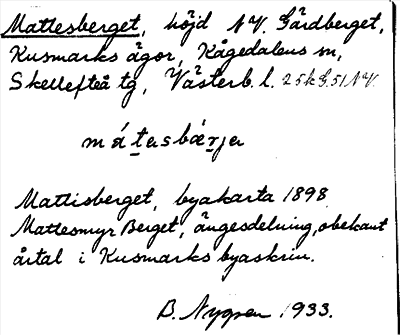 Mattesberget, höjd N.V. Gärdberget,
Kusmarks ägor, Kågedalens sn,
Skellefteå tg, Västerb. l. 25k G.51 N.V.
mátesbærja
Mattisberget, byakarta 1898
Mattesmyr Berget, ängesdelning, obekant
årtal i Kusmarks byaskrin.
B. Nygren 1933.